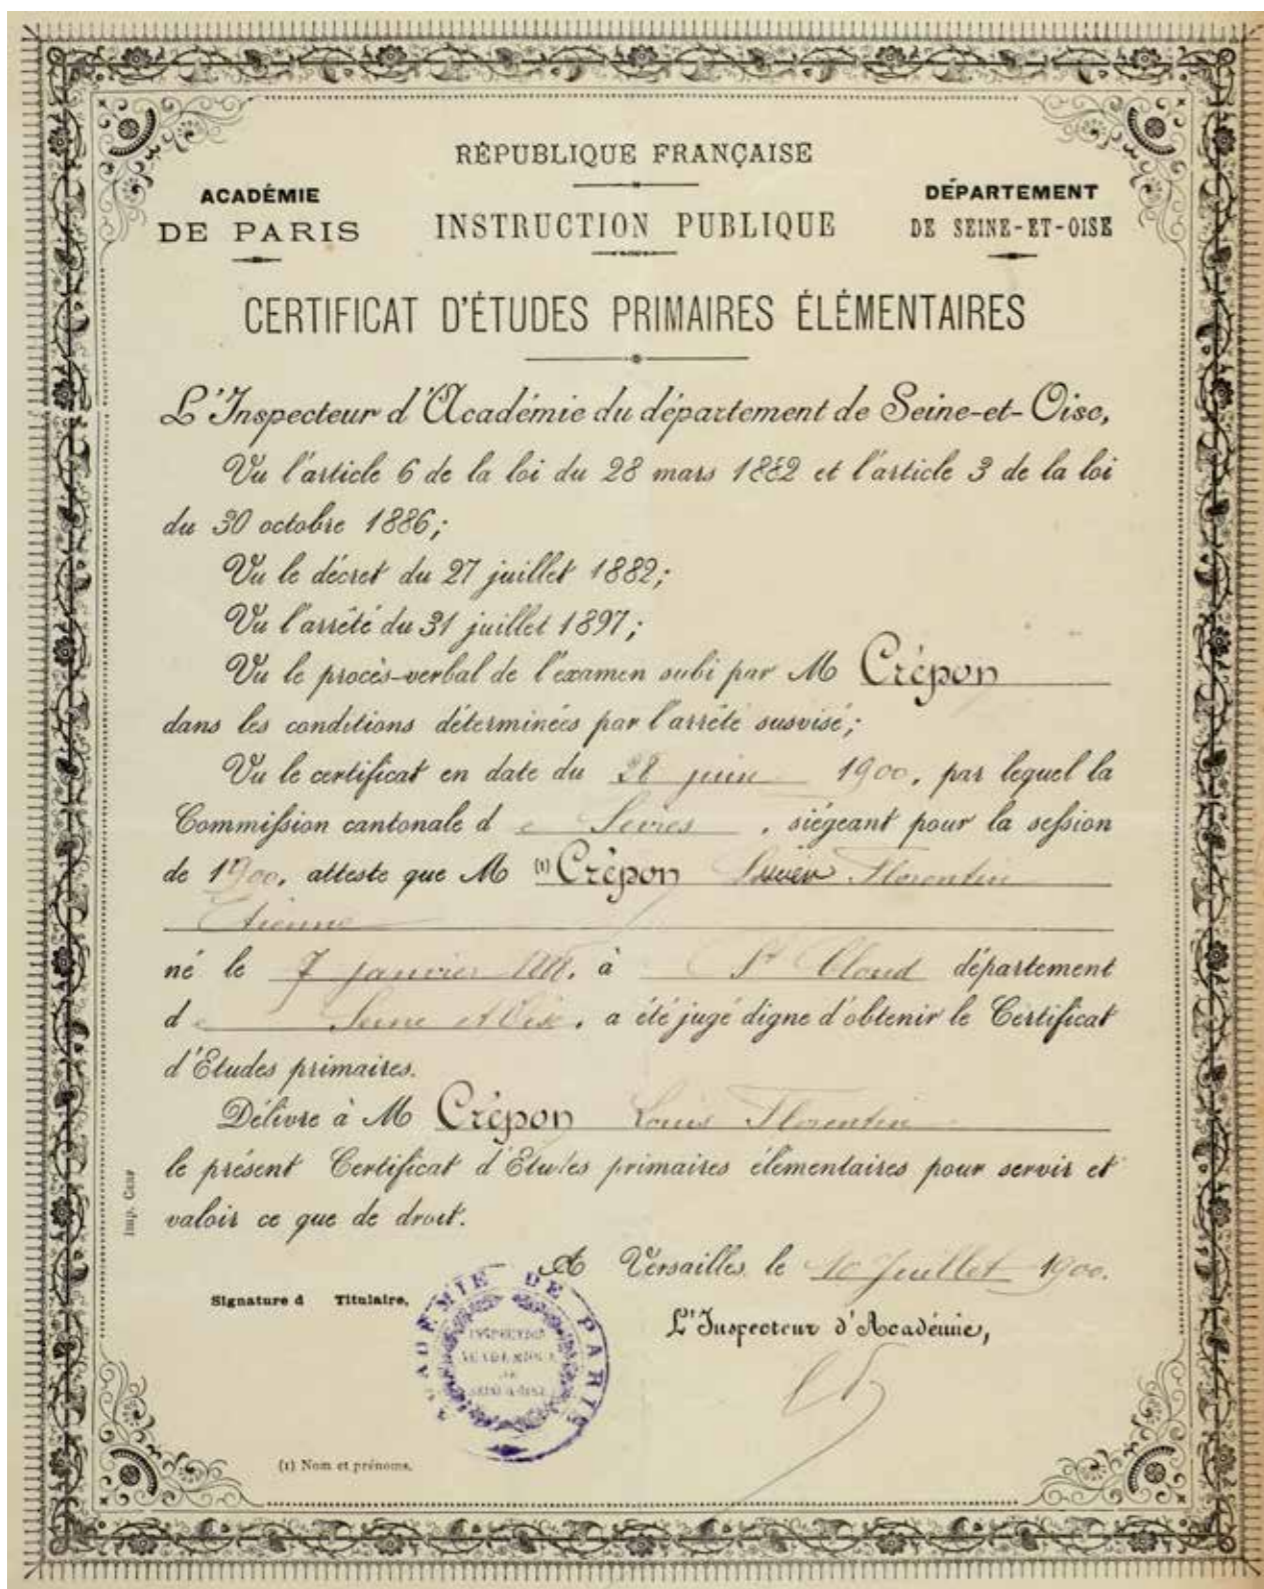 RÉPUBLIQUE FRANÇAISE
ACADÉMIE
DE PARIS
INSTRUCTION PUBLIQUE
DÉPARTEMENT
DE SEINE-ET-OISE
CERTIFICAT D'ÉTUDES PRIMAIRES ÉLÉMENTAIRES
L'Inspecteur d'Académie du département de Seine-et-Oise,
Vu l'article 6 de la loi du 28 mars 1882 et l'article 3 de la loi
du 30 octobre 1886;
Vu le décret du 27 juillet 1882;
Vu l'arrêté du 31 juillet 1897;
Vu le procès-verbal de l'examen subi par M Crépon
dans les conditions déterminées par l'arrêté susvisé;
Vu le certificat en date du 28 juin 1900, par lequel la
Commission cantonale de Sèvres, siégeant pour la session
de 1900, atteste que M (1) Crépon Florentin
Etienne
né le 7 janvier 1888, à St Cloud département
de Seine et Oise, a été jugé digne d'obtenir le Certificat
d'Etudes primaires.
Délivré à M Crépon Louis Florentin
le présent Certificat d'Etudes primaires élémentaires pour servir et
valoir ce que de droit.
A Versailles, le 10 Juillet 1900.
Signature d Titulaire,
L'Inspecteur d'Académie,
ACADÉMIE DE PARIS
INSPECTION
ACADÉMIQUE
DE
SEINE-&-OISE
(1) Nom et prénoms.